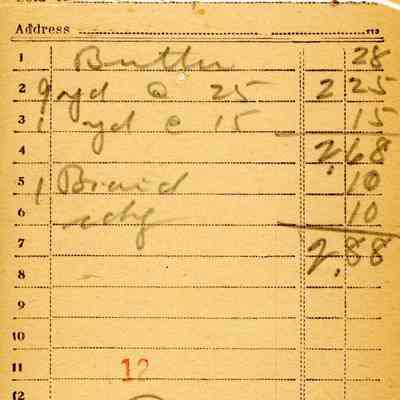 Address
1 Butter 28
2 9 yd @ 25 2 25
3 1 yd @ 15 15
4 2,68
5 1 Braid 10
6 10
7 2,88
8
9
10
11 12
12